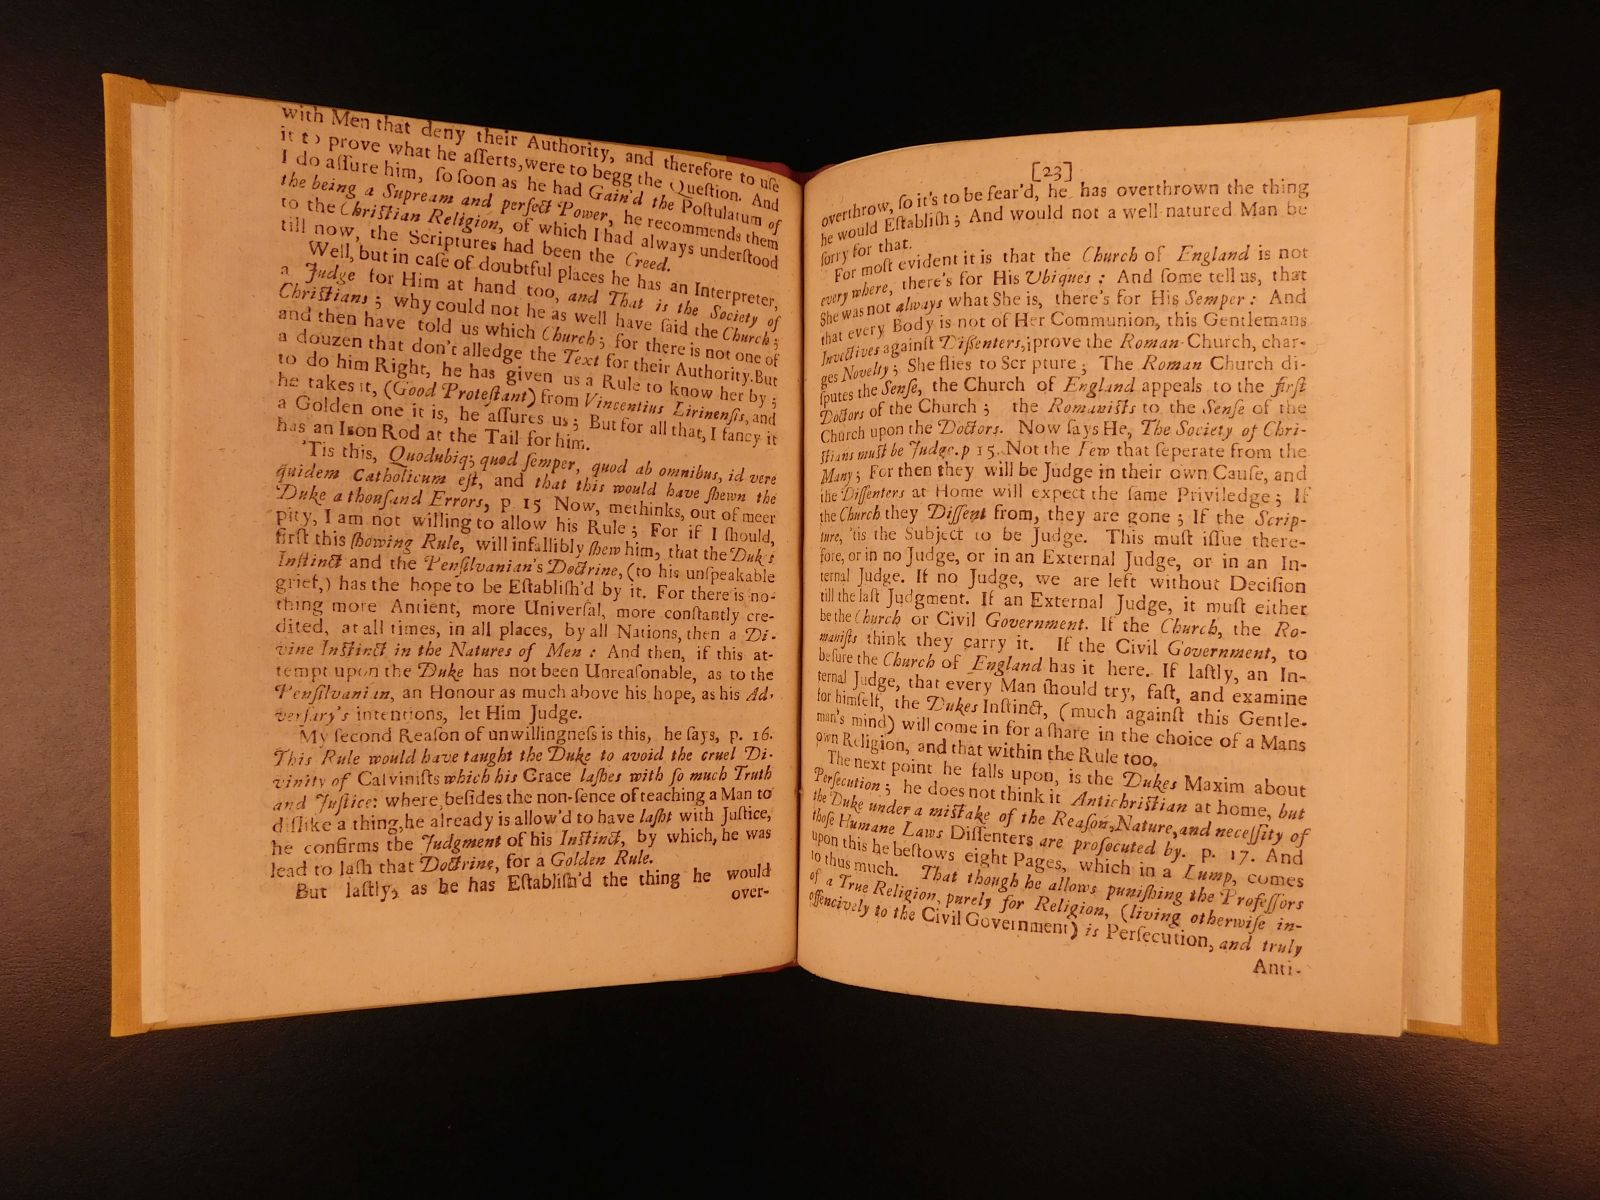 with Men that deny their Authority, and therefore to uſe
it to prove what he aſſerts, were to begg the Queſtion. And
I do aſſure him, ſo ſoon as he had Gain'd the Poſtulatum of
the being a Supream and perfect Power, he recommends them
to the Chriſtian Religion, of which I had always underſtood
till now, the Scriptures had been the Creed.
Well, but in caſe of doubtful places he has an Interpreter,
a Judge for Him at hand too, and That is the Society of
Chriſtians; why could not he as well have ſaid the Church;
and then have told us which Church; for there is not one of
a douzen that don't alledge the Text for their Authority. But
to do him Right, he has given us a Rule to know her by;
he takes it, (Good Proteſtant) from Vincentius Lirinenſis, and
a Golden one it is, he aſſures us; But for all that, I fancy it
has an Iron Rod at the Tail for him.
'Tis this, Quodubiq; quod ſemper, quod ab omnibus, id vere
quidem Catholicum eſt, and that this would have ſhewn the
Duke a thouſand Errors, p 15 Now, methinks, out of meer
pity, I am not willing to allow his Rule; For if I ſhould,
firſt this ſhowing Rule, will infallibly ſhew him, that the Dukes
Inſtinct and the Penſilvanian's Doctrine, (to his unſpeakable
grief,) has the hope to be Eſtabliſh'd by it. For there is no-
thing more Antient, more Univerſal, more conſtantly cre-
dited, at all times, in all places, by all Nations, then a Di-
vine Inſtinct in the Natures of Men: And then, if this at-
tempt upon the Duke has not been Unreaſonable, as to the
Penſilvanian, an Honour as much above his hope, as his Ad-
verſary's intentions, let Him Judge.
My ſecond Reaſon of unwillingneſs is this, he ſays, p. 16.
This Rule would have taught the Duke to avoid the cruel Di-
vinity of Calviniſts which his Grace laſhes with ſo much Truth
and Juſtice: where, beſides the non-ſence of teaching a Man to
diſlike a thing, he already is allow'd to have laſht with Juſtice,
he confirms the Judgment of his Inſtinct, by which, he was
lead to laſh that Doctrine, for a Golden Rule.
But laſtly, as he has Eſtabliſh'd the thing he would
over-
[23]
overthrow, ſo it's to be fear'd, he has overthrown the thing
he would Eſtabliſh; And would not a well natured Man be
ſorry for that.
For moſt evident it is that the Church of England is not
every where, there's for His Ubiques: And ſome tell us, that
She was not always what She is, there's for His Semper: And
that every Body is not of Her Communion, this Gentlemans
Invectives againſt Diſſenters, prove the Roman Church, char-
ges Novelty; She flies to Scripture; The Roman Church di-
ſputes the Senſe, the Church of England appeals to the firſt
Doctors of the Church; the Romaniſts to the Senſe of the
Church upon the Doctors. Now ſays He, The Society of Chri-
ſtians muſt be Judge. p 15. Not the Few that ſeperate from the
Many; For then they will be Judge in their own Cauſe, and
the Diſſenters at Home will expect the ſame Priviledge; If
the Church they Diſſent from, they are gone; If the Scrip-
ture, 'tis the Subject to be Judge. This muſt iſſue there-
fore, or in no Judge, or in an External Judge, or in an In-
ternal Judge. If no Judge, we are left without Deciſion
till the laſt Judgment. If an External Judge, it muſt either
be the Church or Civil Government. If the Church, the Ro-
maniſts think they carry it. If the Civil Government, to
be ſure the Church of England has it here. If laſtly, an In-
ternal Judge, that every Man ſhould try, faſt, and examine
for himſelf, the Dukes Inſtinct, (much againſt this Gentle-
man's mind) will come in for a ſhare in the choice of a Mans
own Religion, and that within the Rule too.
The next point he falls upon, is the Dukes Maxim about
Perſecution; he does not think it Antichriſtian at home, but
the Duke under a miſtake of the Reaſon, Nature, and neceſſity of
thoſe Humane Laws Diſſenters are proſecuted by. p. 17. And
upon this he beſtows eight Pages, which in a Lump, comes
to thus much. That though he allows puniſhing the Profeſſors
of a True Religion, purely for Religion, (living otherwiſe in-
offencively to the Civil Government) is Perſecution, and truly
Anti-